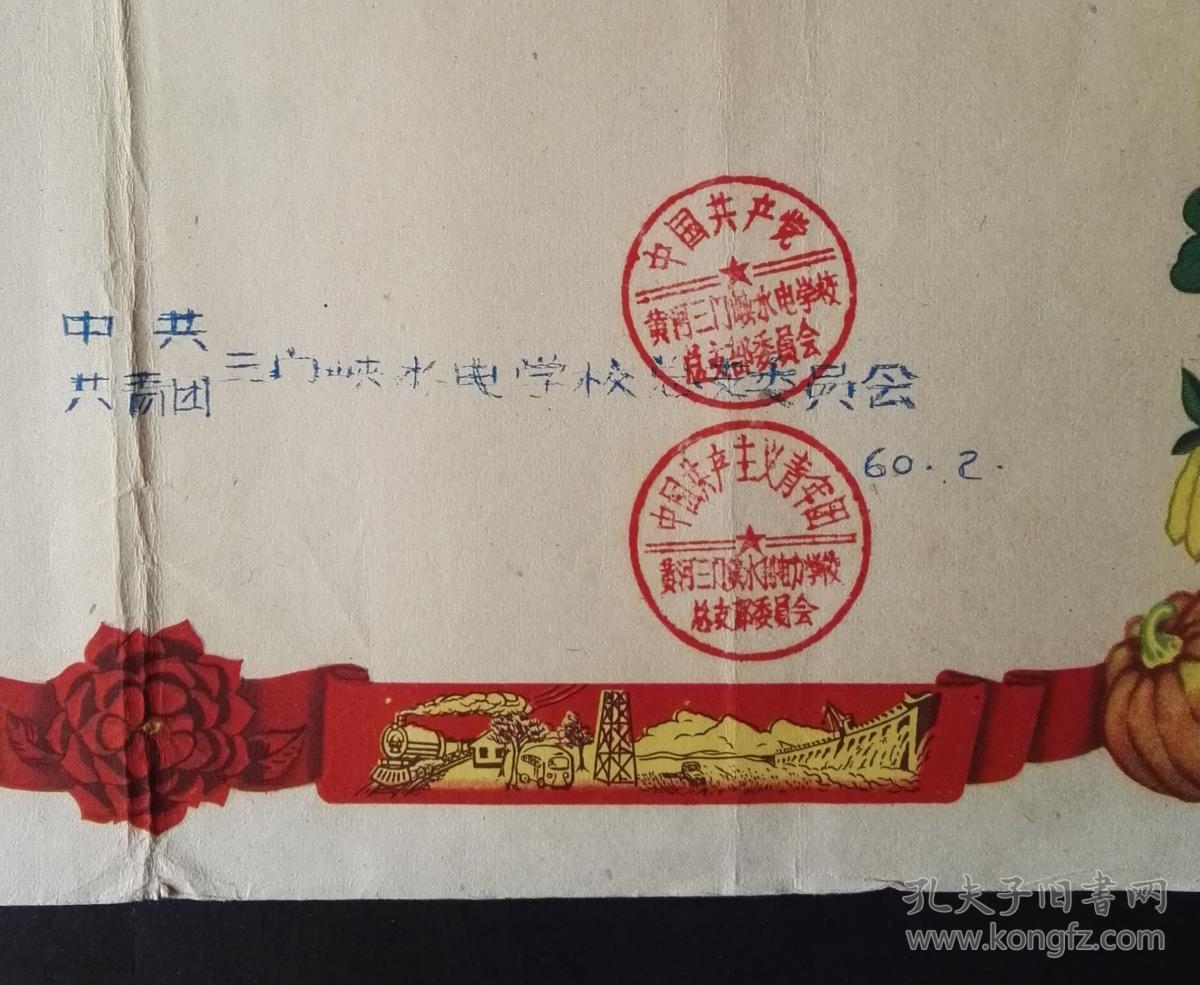 中国共产党
黄河三门峡水电学校
总支部委员会
中共
共青团
三门峡水电学校总支委员会
60.2.
中国共产主义青年团
黄河三门峡水利电力学校
总支部委员会
孔夫子旧书网
www.kongfz.com